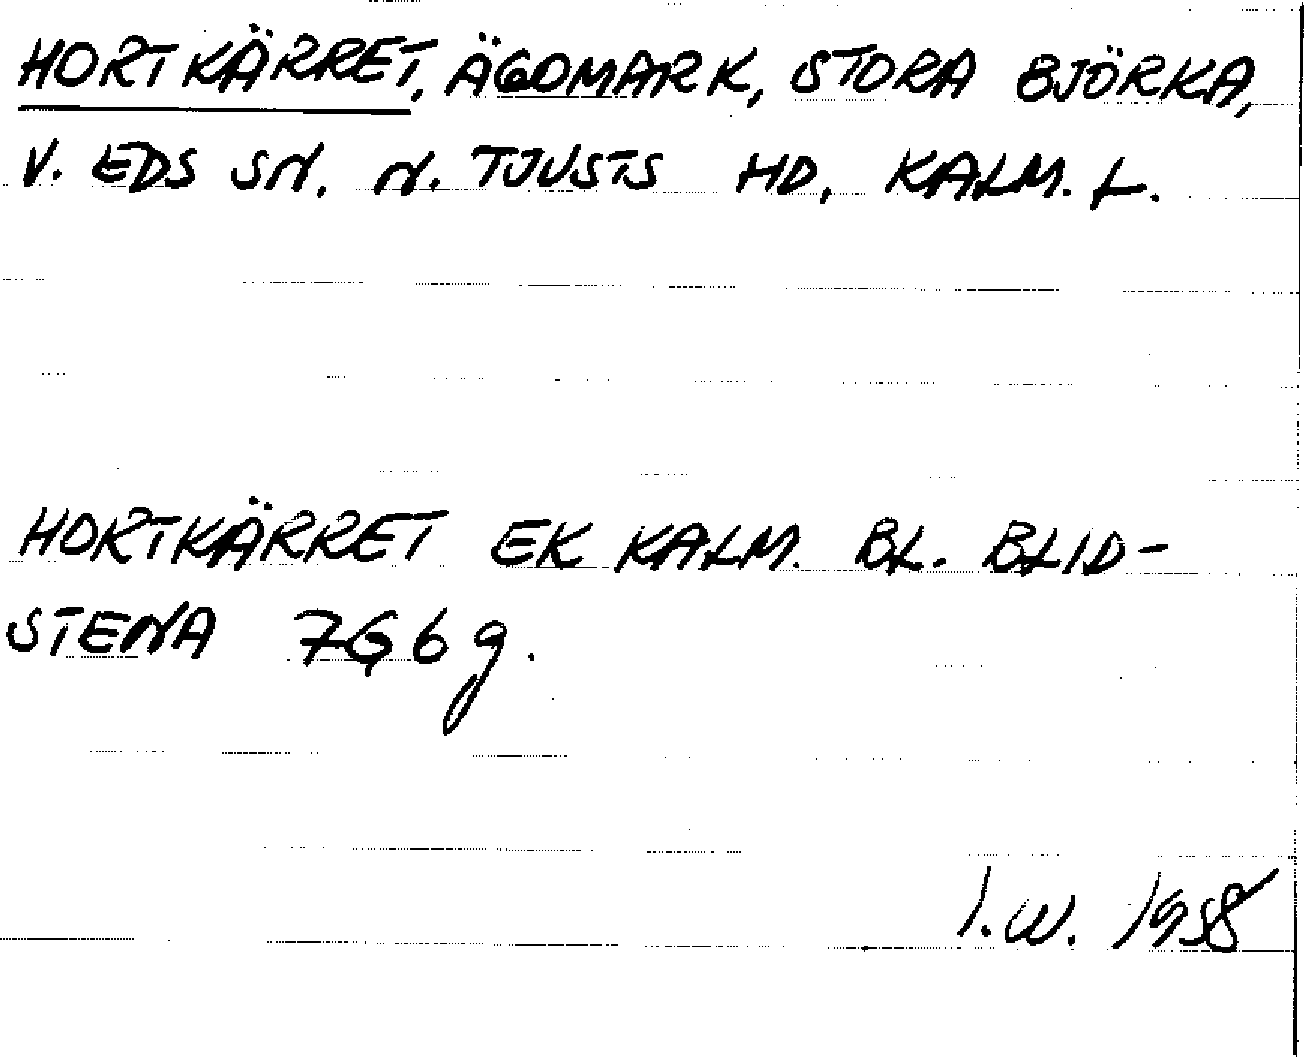 HORTKÄRRET, ÄGOMARK, STORA BJÖRKA,
V. EDS SN. N. TJUSTS HD, KALM. L.
HORTKÄRRET EK KALM. BL. BLID-
STENA 7G6g.
I.W. 1958